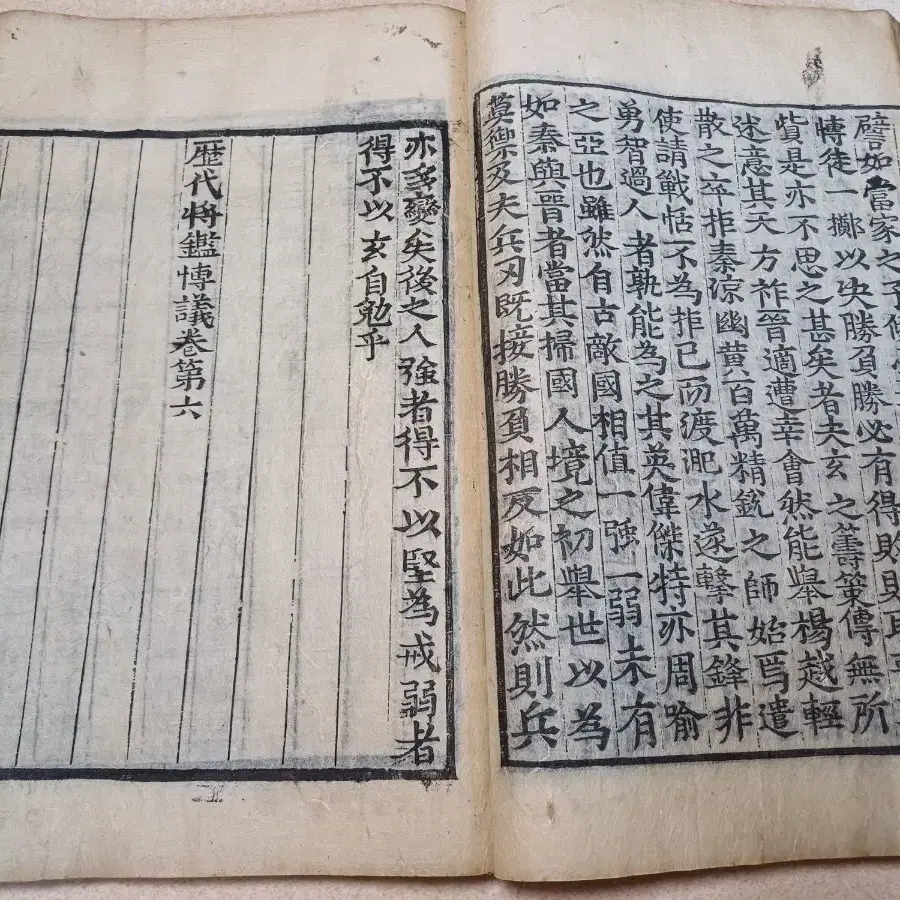 譬如當家之子
慱徒一擲以决勝負必有得敗則
貲是亦不思之甚矣者夫玄之籌策傳無所
迷意其天方祚晉適遭幸會然能舉楊越輕
散之卒拒秦凉幽黄百萬精銳之師始焉遣
使請戰恬不為拒已而渡淝水遂擊其鋒非
勇智過人者孰能為之其英偉傑特亦周喻
之亞也雖然自古敵國相值一強一弱未有
如秦與晉者當其掃國人境之初舉世以為
莫禦及夫兵刃既接勝負相反如此然則兵
亦多變矣後之人強者得不以堅為戒弱者
得不以玄自勉乎
歴代將鑑慱議卷第六